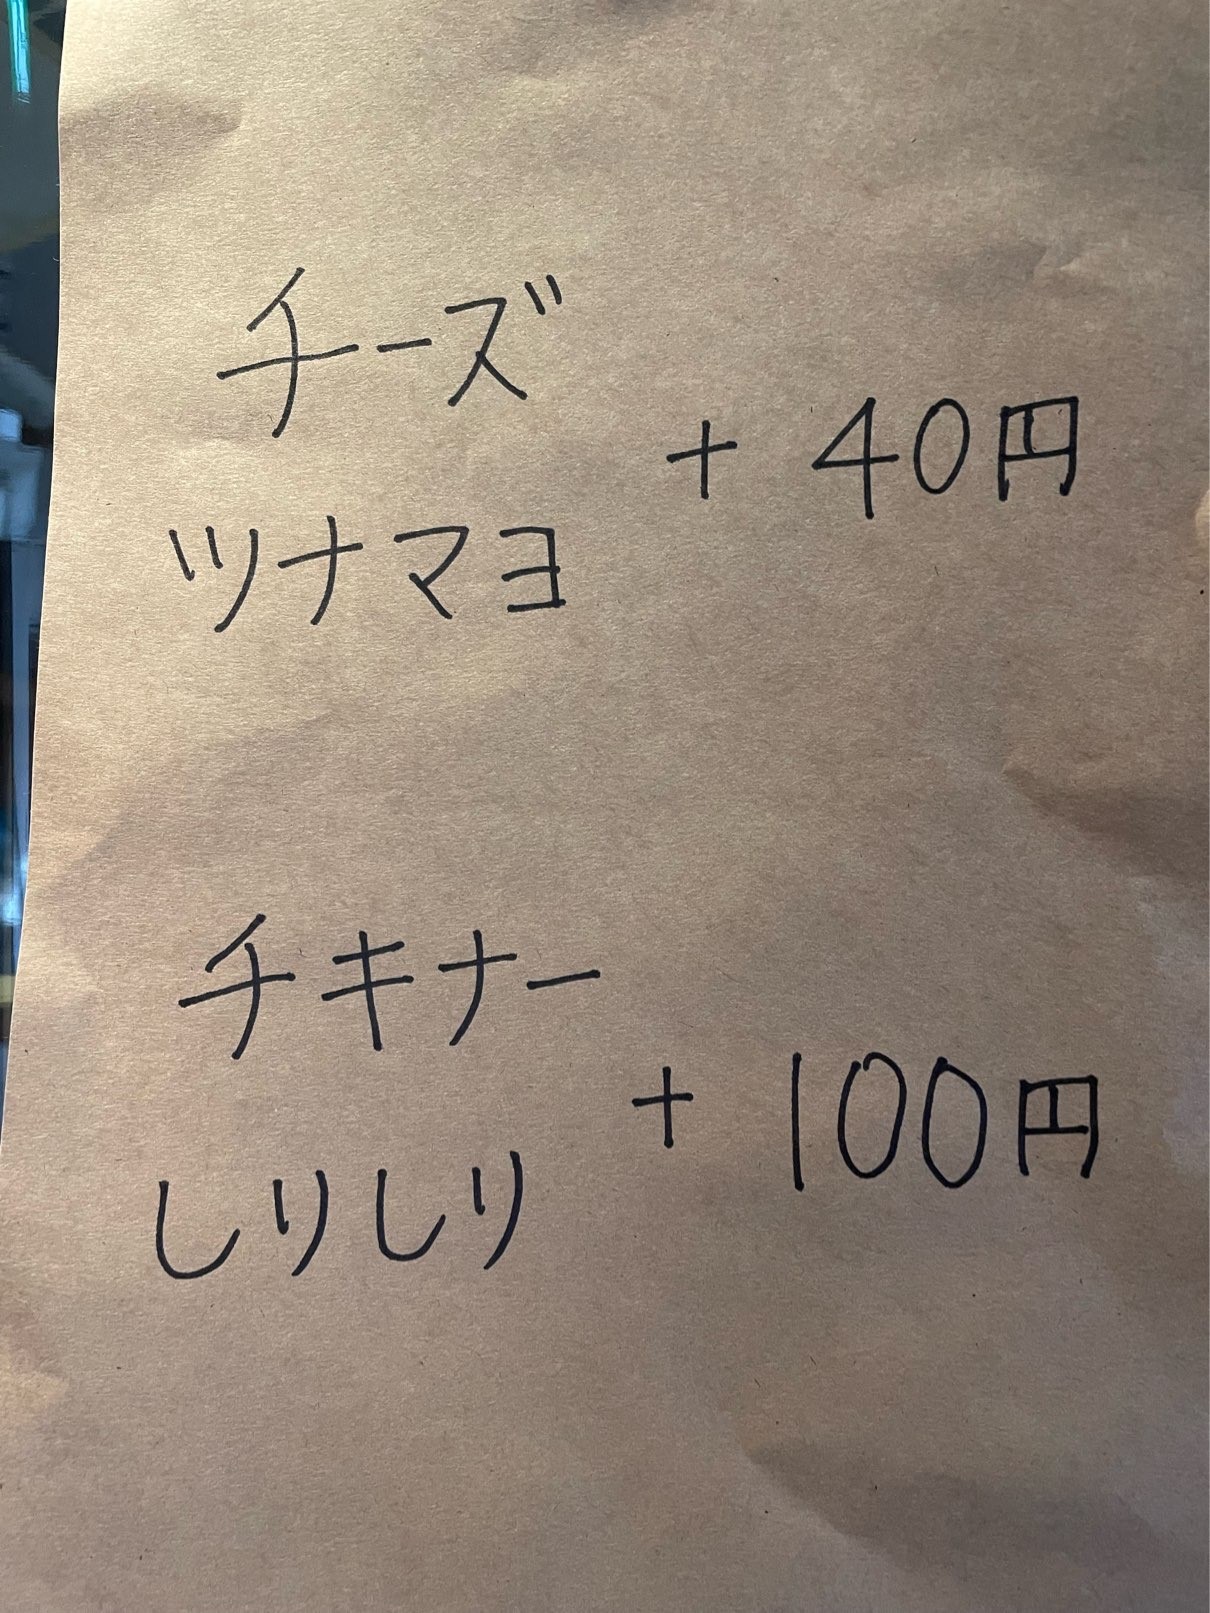 チーズ
+ 40円
ツナマヨ
チキナー
+ 100円
しりしり